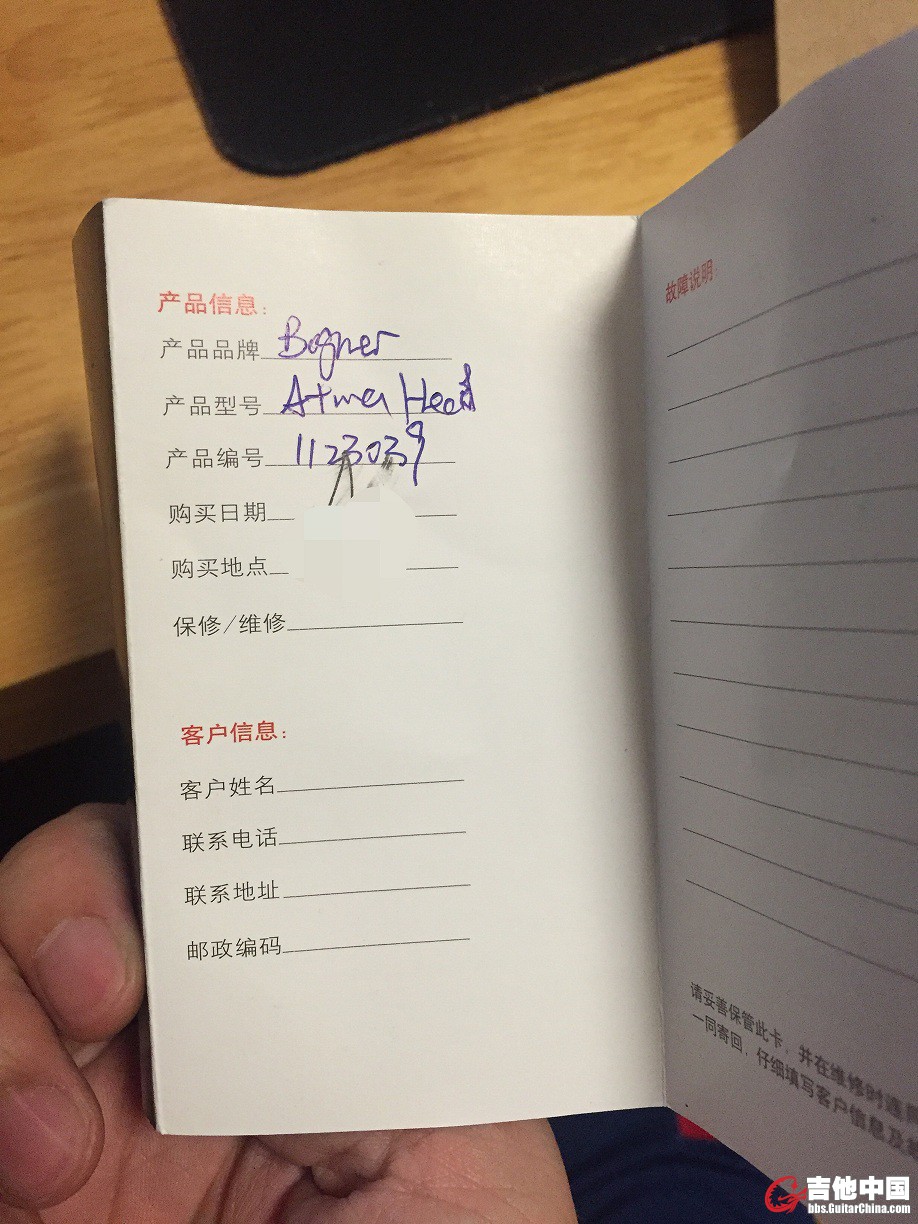 产品信息:
产品品牌 Bogner
产品型号 Atma Head
产品编号 1123039
购买日期
购买地点
保修/维修
客户信息:
客户姓名
联系电话
联系地址
邮政编码
故障说明:
请妥善保管此卡，并在维修时连
一同寄回，仔细填写客户信息及
吉他中国
bbs.GuitarChina.com